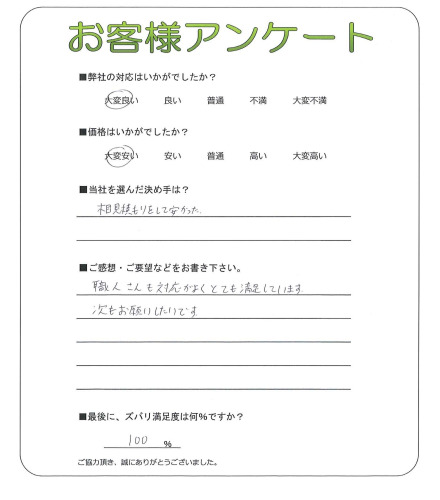 お客様アンケート
■弊社の対応はいかがでしたか？
大変良い 良い 普通 不満 大変不満
■価格はいかがでしたか？
大変安い 安い 普通 高い 大変高い
■当社を選んだ決め手は？
相見積もりをして安かった
■ご感想・ご要望などをお書き下さい。
職人さんも対応がよくとても満足しています
次もお願いしたいです
■最後に、ズバリ満足度は何％ですか？
100 ％
ご協力頂き、誠にありがとうございました。